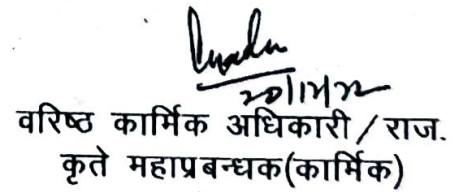 20/12/22
वरिष्ठ कार्मिक अधिकारी / राज.
कृते महाप्रबन्धक(कार्मिक)